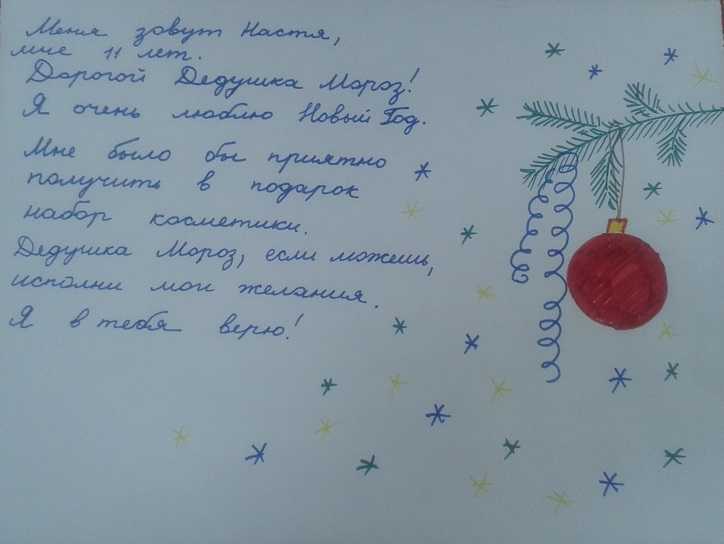 Меня зовут Настя,
мне 11 лет.
Дорогой Дедушка Мороз!
Я очень люблю Новый Год.
Мне было бы приятно
получить в подарок
набор косметики.
Дедушка Мороз, если можешь,
исполни мои желания.
Я в тебя верю!